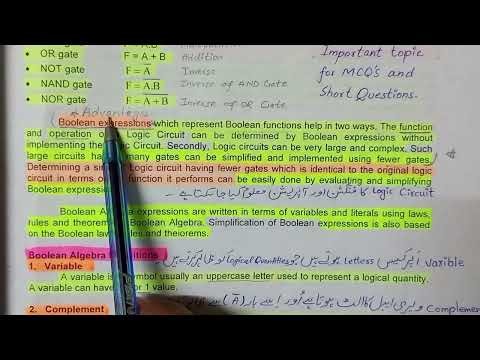 F = A.B
• OR gate F = A + B Addition
• NOT gate F = A̅ Inverse
• NAND gate F = A̅.̅B̅ Inverse of AND Gate
• NOR gate F = A̅ ̅+̅ ̅B̅ Inverse of OR Gate
Important topic
for MCQ's and
Short Questions.
Boolean expressions which represent Boolean functions help in two ways. The function
and operation of Logic Circuit can be determined by Boolean expressions without
implementing the Circuit. Secondly, Logic circuits can be very large and complex. Such
large circuits many gates can be simplified and implemented using fewer gates.
Determining a Logic circuit having fewer gates which is identical to the original logic
circuit in terms function it performs can be easily done by evaluating and simplifying
Boolean expression
Logic Circuit کا فنکشن اور آپریشن معلوم کیا جا سکتا ہے
Boolean A expressions are written in terms of variables and literals using laws,
rules and theorems Algebra. Simplification of Boolean expressions is also based
on the Boolean law and theorems.
Boolean Algebra
1. Variable
A symbol usually an uppercase letter used to represent a logical quantity.
A variable can have or 1 value.
2. Complement